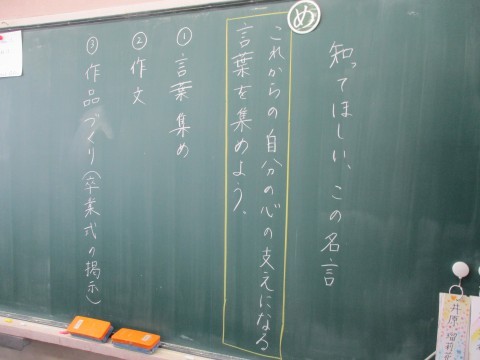 知ってほしい、この名言
め
これからの自分の心の支えになる
言葉を集めよう。
① 言葉集め
② 作文
③ 作品づくり(卒業式の掲示)